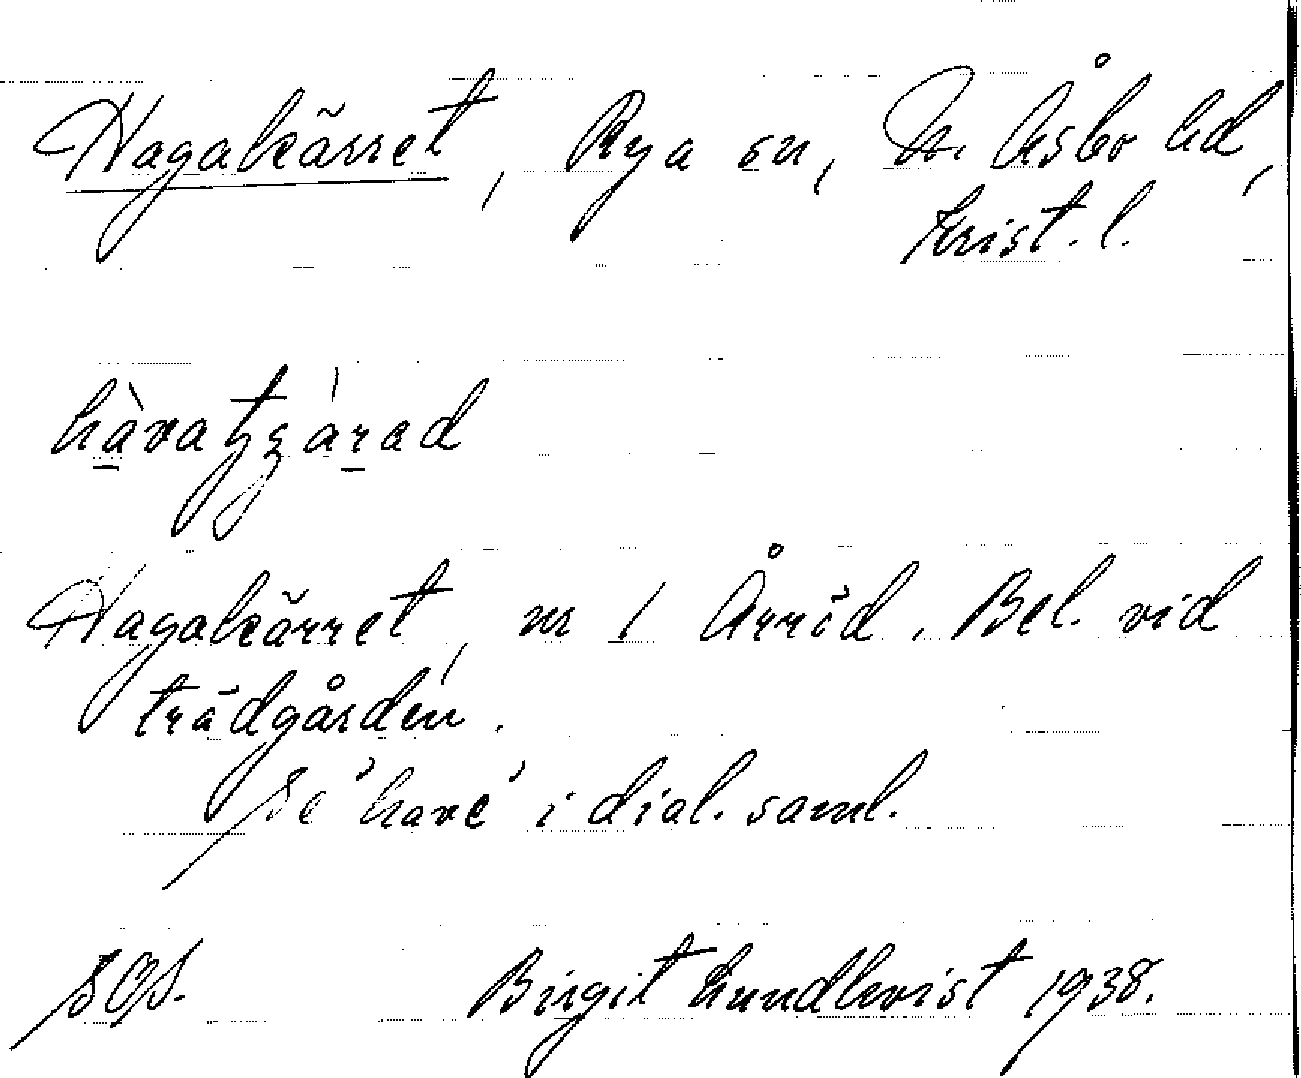 Hagakärret, Rya sn, N. Åsbo hd,
Krist. l.
Hagakärret, nr 1 Årröd. Bel. vid
trädgården.
Se 'have' i dial. saml.
SOS. Birgit Lundkvist 1938.